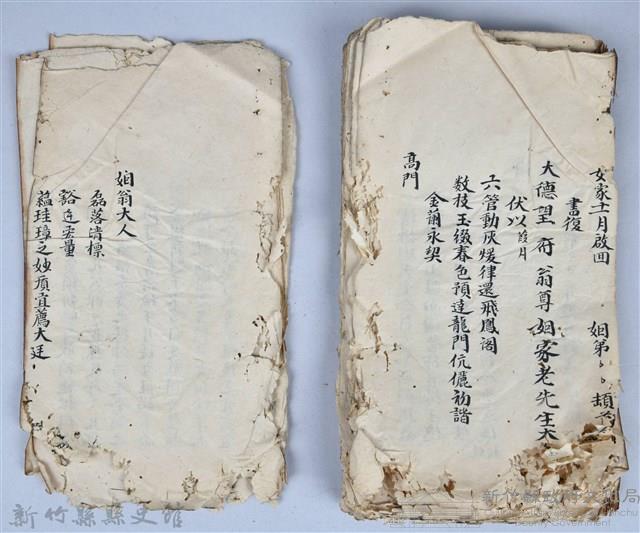 女家十一月啟回 姻弟、、頓首
書復
大德望 府 翁尊姻家老先生大
伏以葭月
六管動灰煖律還飛鳳閣
数枝玉綴春色預達龍門伉儷初諧
金蘭永契
高門
姻翁大人
磊落清標
豁達
量
蘊珪璋之妙質宜薦大廷、
新竹縣縣史館
新竹縣政府文化局
County Government